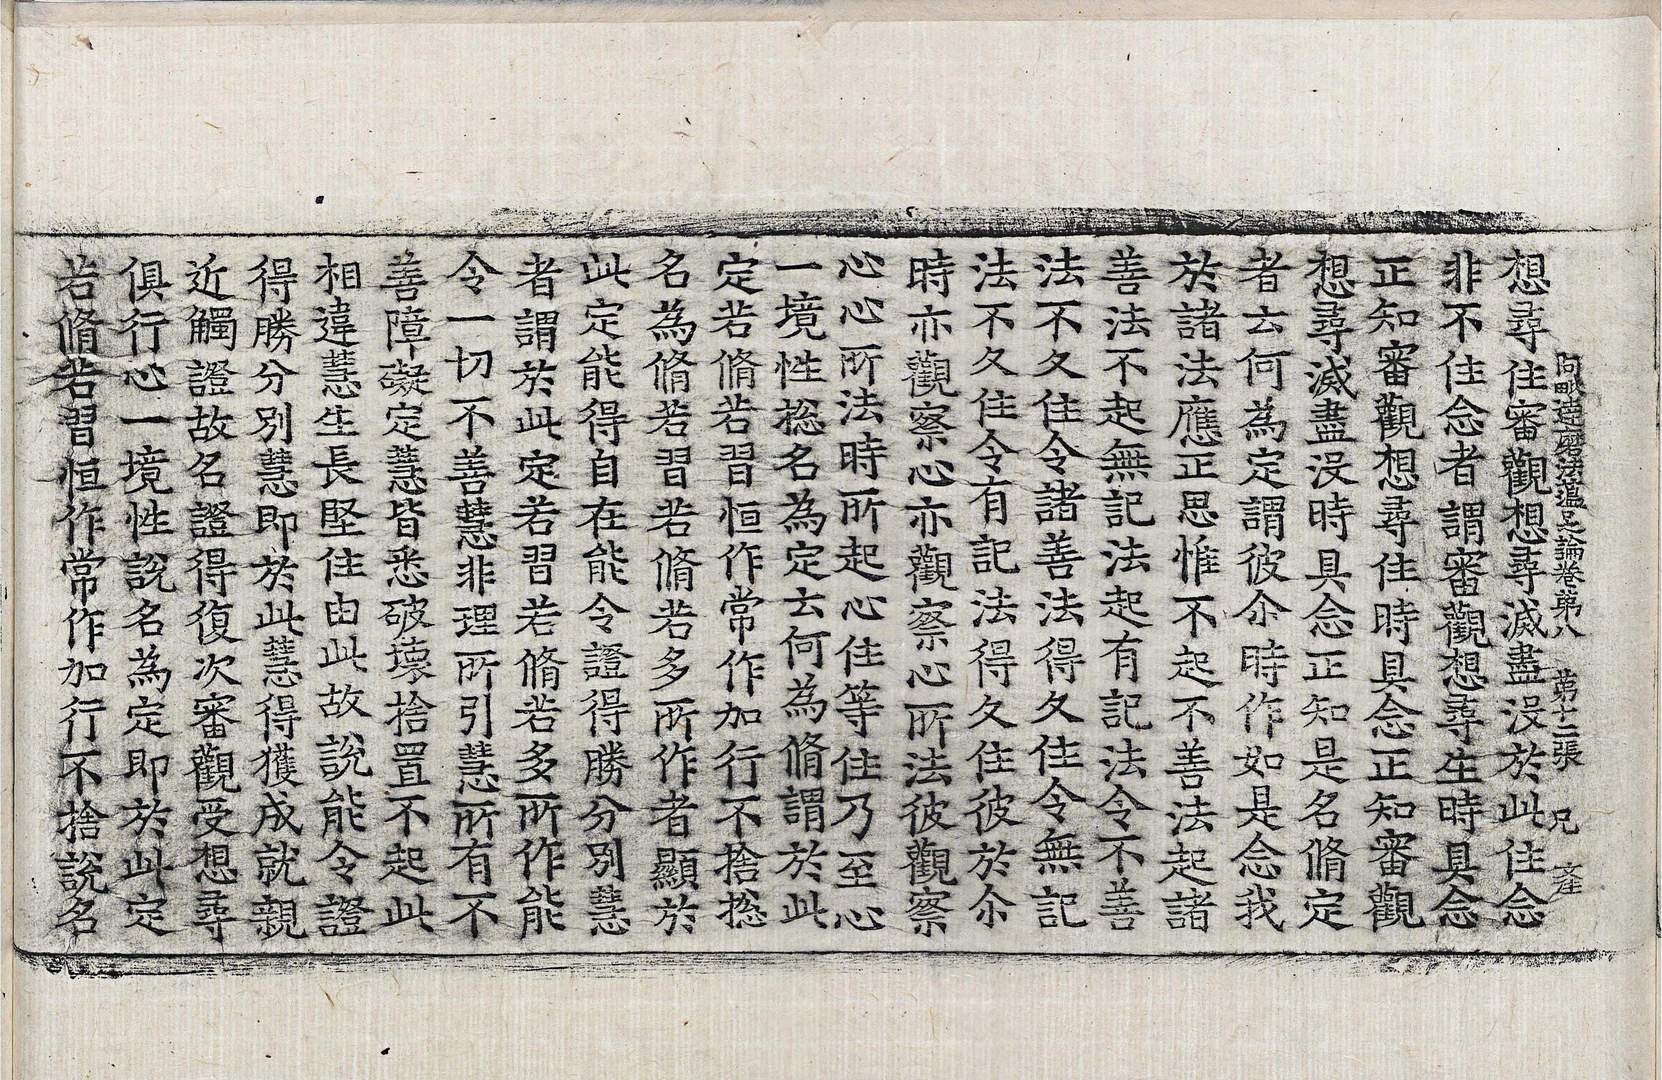 阿毗達磨法蘊足論卷第八　第十二張　兄
想尋住審觀想尋滅盡沒於此住念
非不住念者謂審觀想尋生時具念
正知審觀想尋住時具念正知審觀
想尋滅盡沒時具念正知是名脩定
者云何為定謂彼尒時作如是念我
於諸法應正思惟不起不善法起諸
善法不起無記法起有記法令不善
法不久住令諸善法得久住令無記
法不久住令有記法得久住彼於尒
時亦觀察心亦觀察心所法彼觀察
心心所法時所起心住等住乃至心
一境性捴名為定云何為脩謂於此
定若脩若習恒作常作加行不捨捴
名為脩若習若脩若多所作者顯於
此定能得自在能令證得勝分別慧
者謂於此定若習若脩若多所作能
令一切不善慧非理所引慧所有不
善障礙定慧皆悉破壞捨置不起此
相違慧生長堅住由此故說能令證
得勝分別慧即於此慧得獲成就親
近觸證故名證得復次審觀受想尋
俱行心一境性說名為定即於此定
若脩若習恒作常作加行不捨說名